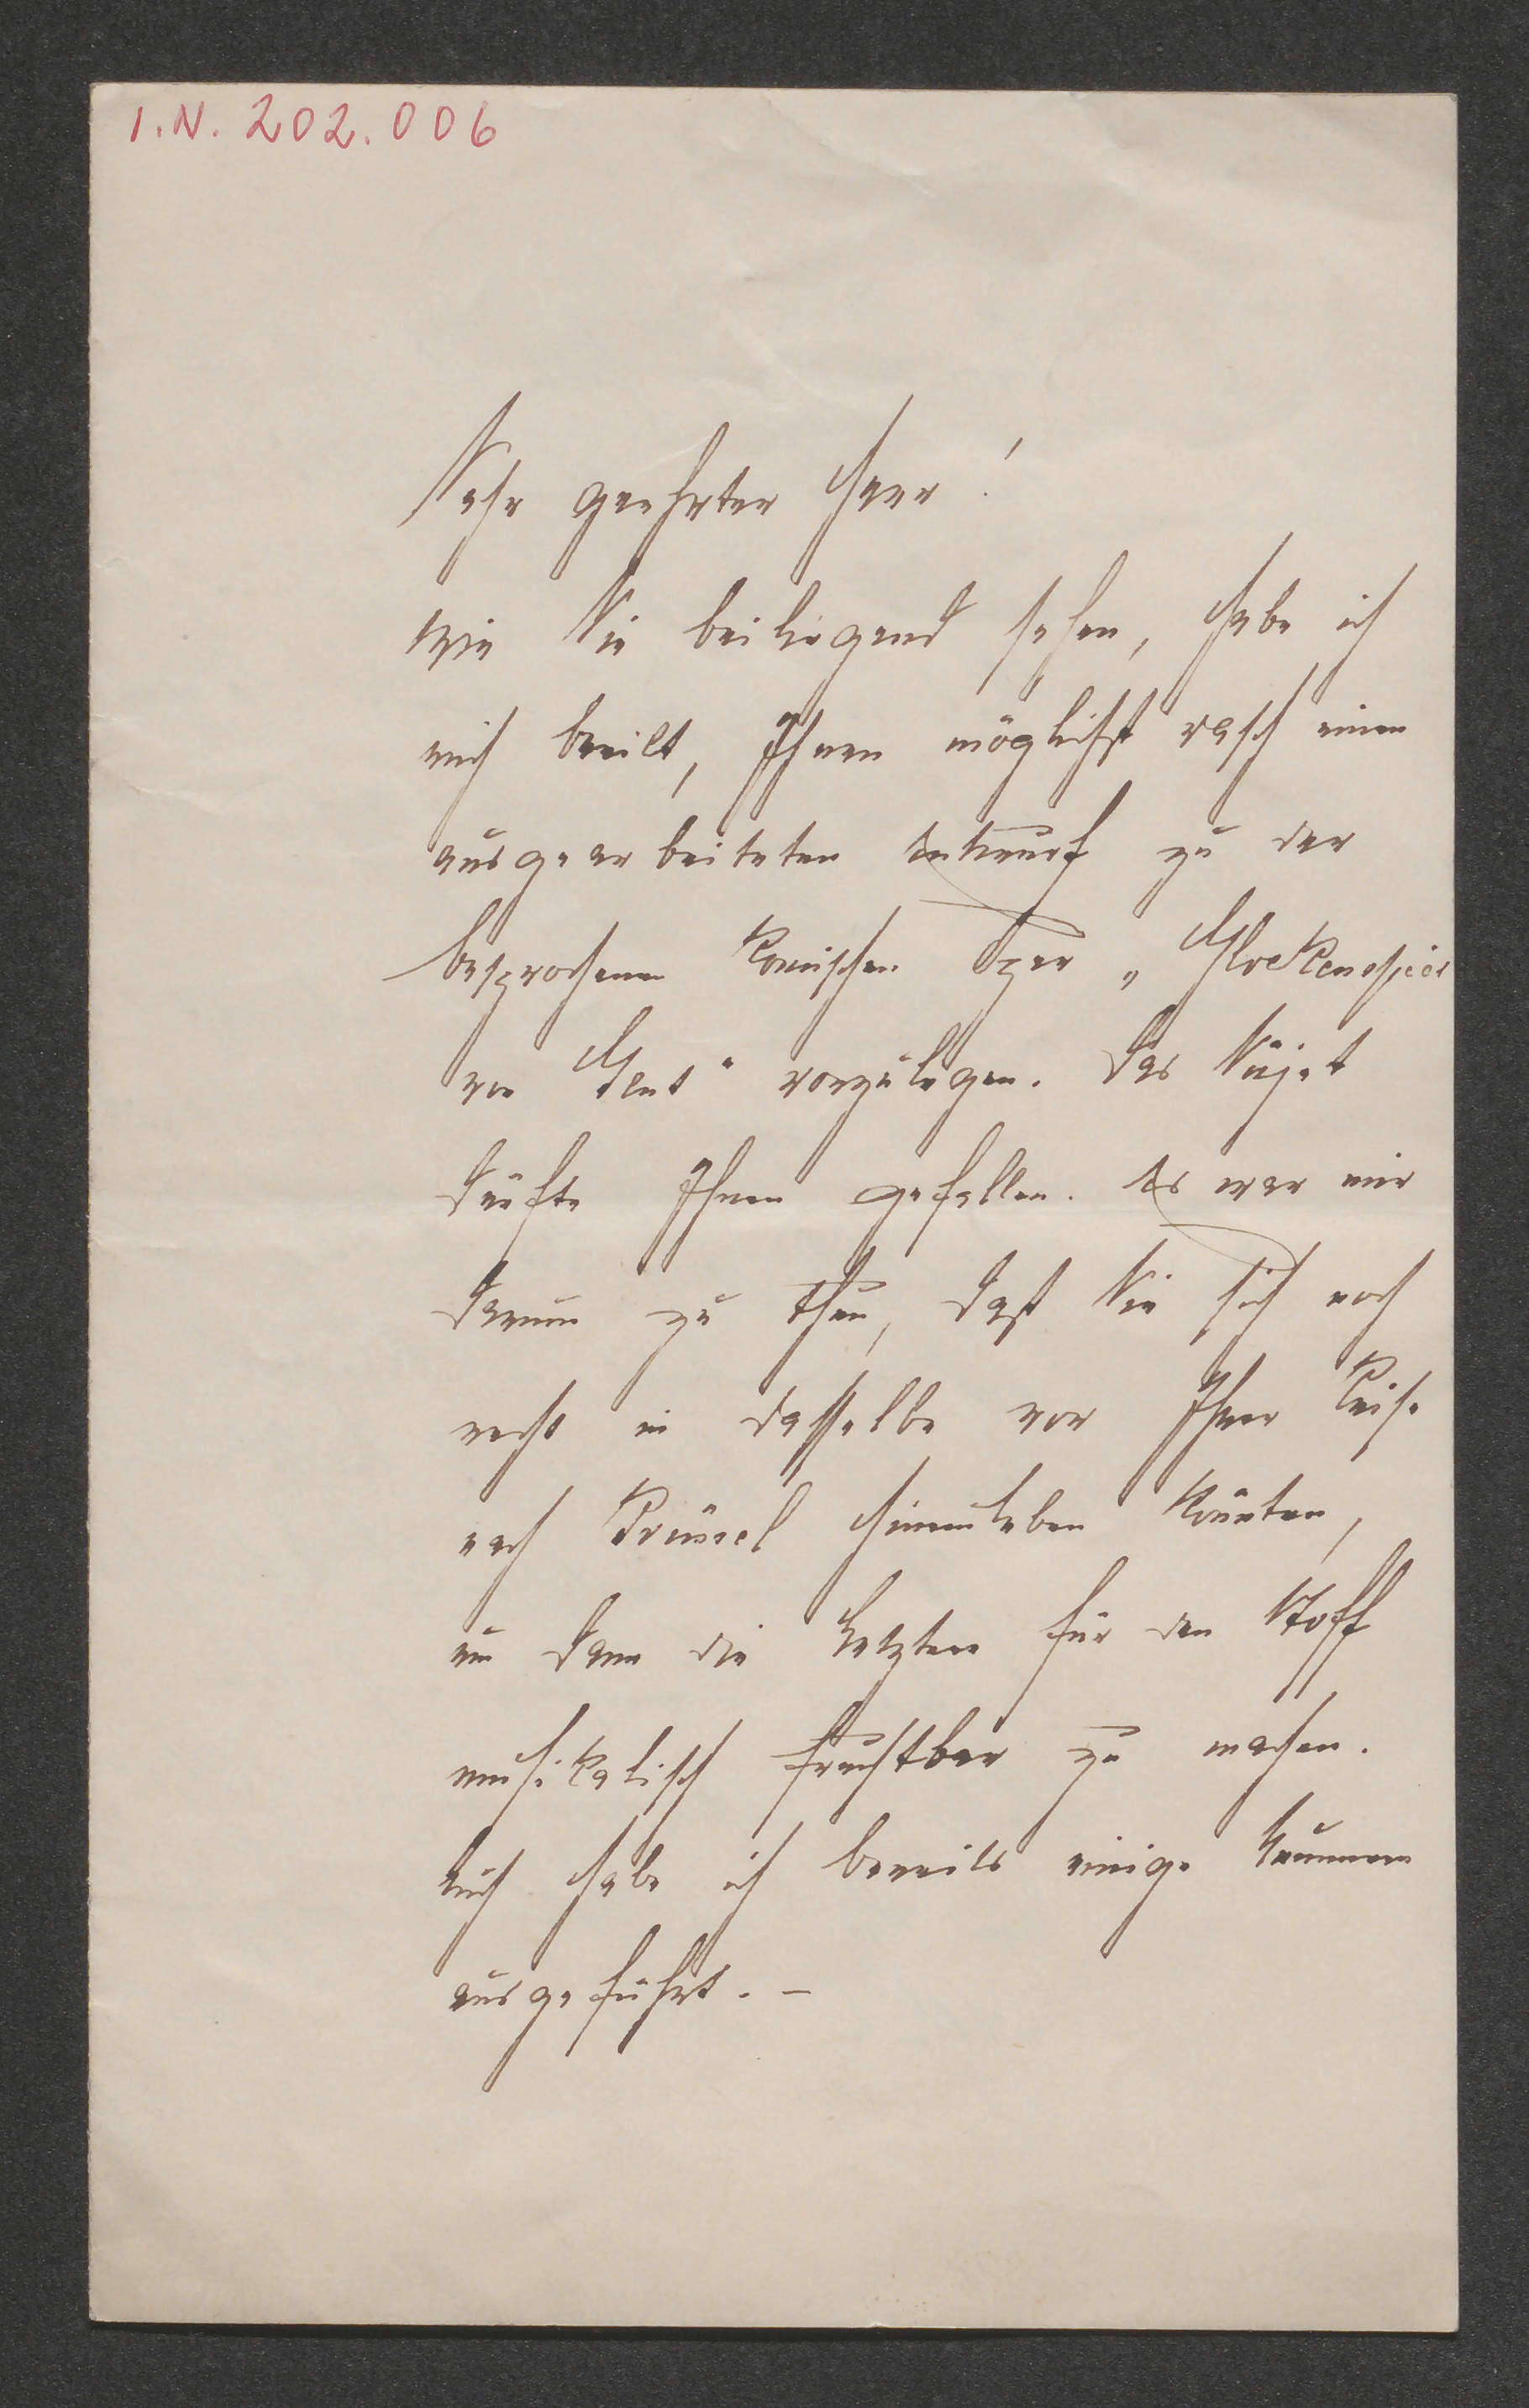 I.N. 202.006
Sehr geehrter Herr!
Wie Sie beiliegend sehen, habe ich
mich beeilt, Ihnen möglichst rasch einen
ausgearbeiteten Entwurf zu der
besprochenen komischen Oper „Glockenspiel
von Gent" vorzulegen. Das Sujet
dürfte Ihnen gefallen. Es war mir
darum zu thun, daß Sie sich noch
recht in dasselbe vor Ihrer Reise
nach Brüssel hineinleben könnten,
um dann die Letztere für den Stoff
musikalisch fruchtbar zu machen.
Auch habe ich bereits einige Nummern
ausgeführt. –